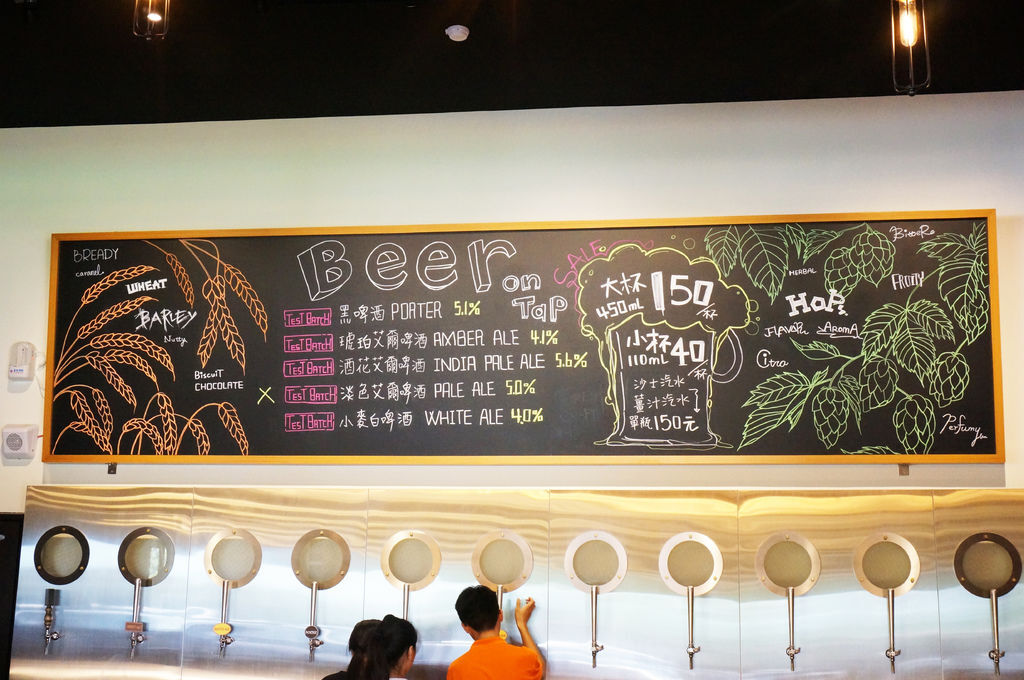 BREADY
caramel
WHEAT
BARLEY
Nutty
BiscuiT
CHOCOLATE
Beer on Tap
TesT BatcH 黑啤酒 PORTER 5.1%
TesT BatcH 琥珀艾爾啤酒 AMBER ALE 4.1%
TesT BatcH 酒花艾爾啤酒 INDIA PALE ALE 5.6%
TesT BatcH 淡色艾爾啤酒 PALE ALE 5.0%
TesT BatcH 小麥白啤酒 WHITE ALE 4.0%
SALE
大杯 450mL 150/杯
小杯 110mL 40/杯
沙士汽水
薑汁汽水
單瓶150元
HERBAL
BitteR
FRUITY
HoP
FLAVOR AROMA
Citra
Perfumy